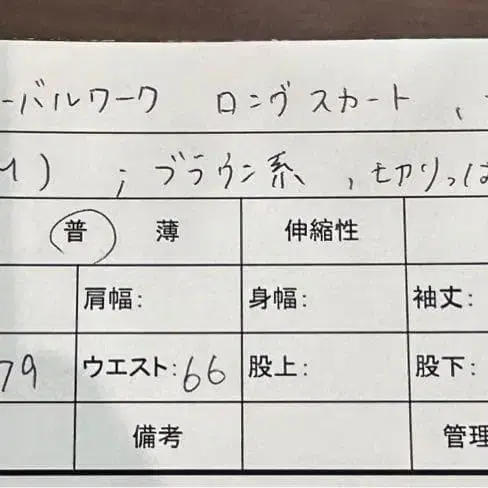 ーバルワーク ロングスカート,
M) ; ブラウン系 , 切りっぱ
普 薄 伸縮性
肩幅: 身幅: 袖丈:
79 ウエスト:66 股上: 股下:
備考 管理